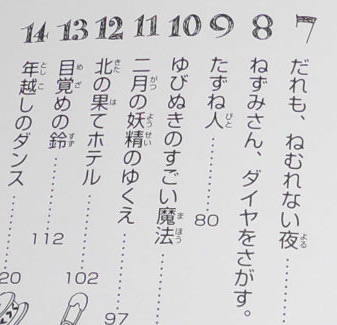 7 だれも、ねむれない夜
8 ねずみさん、ダイヤをさがす。
9 たずね人 80
10 ゆびぬきのすごい魔法
11 二月の妖精のゆくえ 97
12 北の果てホテル 102
13 目覚めの鈴 112
14 年越しのダンス 20